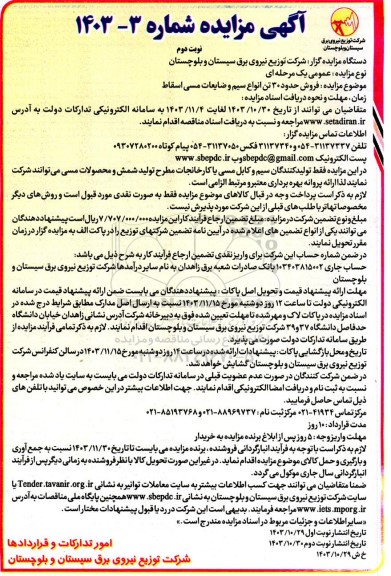 شرکت توزیع نیروی برق
سیستان و بلوچستان
آگهی مزایده شماره ۳- ۱۴۰۳
نوبت دوم
دستگاه مزایده گزار: شرکت توزیع نیروی برق سیستان و بلوچستان
نوع مزایده: عمومی یک مرحله ای
موضوع مزایده: فروش حدود ۳۰ تن انواع سیم و ضایعات مسی اسقاط
زمان، مهلت و نحوه دریافت اسناد مزایده:
متقاضیان می توانند از تاریخ ۱۴۰۳/۱۰/۳۰ لغایت ۱۴۰۳/۱۱/۴ به سامانه الکترونیکی تدارکات دولت به آدرس
www.setadiran.ir مراجعه و نسبت به دریافت اسناد مناقصه اقدام نمایند.
اطلاعات تماس مزایده گزار:
تلفن ۳۱۱۳۷۳۳۷-۰۵۴ و ۳۱۱۳۷۳۴۰ فکس ۳۱۱۳۷۰۵۰-۰۵۴ پیام کوتاه ۰۹۳۰۷۲۸۰۲۰۰
پست الکترونیک sbepdc@gmail.com وب www.sbepdc.ir
در این مزایده فقط تولیدکنندگان سیم و کابل مسی یا کارخانجات مطرح تولید شمش و محصولات مسی می توانند شرکت
نمایند لذا ارائه پروانه بهره برداری معتبر و مرتبط الزامی است.
لازم به ذکر است پرداخت وجه در قبال کالاهای موضوع مزایده فقط به صورت نقدی مورد قبول است و روش‌های دیگر
مخصوصا تهاتر با طلب های قبلی از این شرکت مورد پذیرش نیست.
مبلغ و نوع تضمین شرکت در مزایده: مبلغ تضمین ارجاع فرآیند کار این مزایده ۷/۷۰۷/۰۰۰/۰۰۰ ریال است پیشنهاددهندگان
می توانند یکی از انواع تضمین های اعلام شده در آیین نامه تضمین شرکتهای توزیع را در پاکت الف به مزایده گزار در زمان
مقرر تحویل نمایند.
در ضمن شماره حساب این شرکت برای واریز نقدی تضمین ارجاع فرآیند کار به شرح ذیل می باشد:
حساب جاری ۰۱۰۳۴۰۳۸۱۵۰۰۲ بانک صادرات شعبه برق زاهدان به نام سایر درآمدها شرکت توزیع نیروی برق سیستان و
بلوچستان
مهلت ارائه پیشنهاد قیمت و تحویل اصل پاکات: پیشنهاددهندگان می بایست ضمن ارائه پیشنهاد قیمت در سامانه
الکترونیکی دولت تا ساعت ۱۲ روز دوشنبه مورخ ۱۴۰۳/۱۱/۱۵ نسبت به ارسال اصل مدارک مطابق شرایط درج شده در
اسناد مزایده در پاکات لاک و مهر شده تا مهلت تعیین شده فوق به دبیرخانه شرکت آدرس نشانی زاهدان خیابان دانشگاه
حدفاصل دانشگاه ۳۷ و ۳۹ شرکت توزیع نیروی برق سیستان و بلوچستان اقدام نمایند. لازم به ذکر تمامی فرآیند مزایده از
طریق سامانه تدارکات دولت صورت می پذیرد.
تاریخ و محل بازگشایی پاکات: پیشنهادات ارائه شده در ساعت ۱۴ روز دوشنبه مورخ ۱۴۰۳/۱۱/۱۵ در سالن کنفرانس شرکت
توزیع نیروی برق سیستان و بلوچستان گشایش خواهد شد.
در ضمن شرکت کنندگان در صورت عدم عضویت قبلی در سامانه تدارکات دولت می بایست به سایت یاد شده مراجعه و
نسبت به ثبت نام و دریافت امضا الکترونیکی اقدام نمایند. جهت اطلاعات بیشتر در این خصوص می توانید با تلفن های
ذیل تماس حاصل فرمایید.
مرکز تماس ۴۱۹۳۴-۰۲۱ مرکز ثبت نام: ۸۸۹۶۹۷۳۷-۰۲۱ و ۸۵۱۹۳۷۶۸-۰۲۱
مدت قرارداد: ۱۰ روز
مهلت واریز وجه: ۵ روز پس از ابلاغ برنده مزایده به خریدار
لازم به ذکر است با توجه به فرآیند انبارگردانی فروشنده، برنده مزایده می بایست تا تاریخ ۱۴۰۳/۱۱/۳۰ نسبت به جمع آوری
و بارگیری و حمل کالای موضوع مزایده اقدام نماید. در غیر این صورت تحویل کالا با نظر فروشنده به زمانی دیگر پس از فرآیند
انبارگردانی سال جاری موکول می گردد.
ضمنا متقاضیان می توانند جهت کسب اطلاعات بیشتر به سایت معاملات توانیر به نشانی Tender.tavanir.org.ir یا
سایت شرکت توزیع نیروی برق سیستان و بلوچستان به نشانی www.sbepdc.ir همچنین پایگاه ملی مناقصات به آدرس
www.iets.mporg.ir مراجعه فرمایند. بدیهی است این شرکت در رد یا قبول پیشنهادات مختار است.
«سایر اطلاعات و جزئیات مربوط در اسناد مزایده مندرج است.»
تاریخ انتشار نوبت اول ۱۴۰۳/۱۰/۲۹
تاریخ انتشار نوبت دوم ۱۴۰۳/۱۰/۳۰
خ ش ۱۴۰۳/۱۰/۲۹
امور تدارکات و قراردادها
شرکت توزیع نیروی برق سیستان و بلوچستان